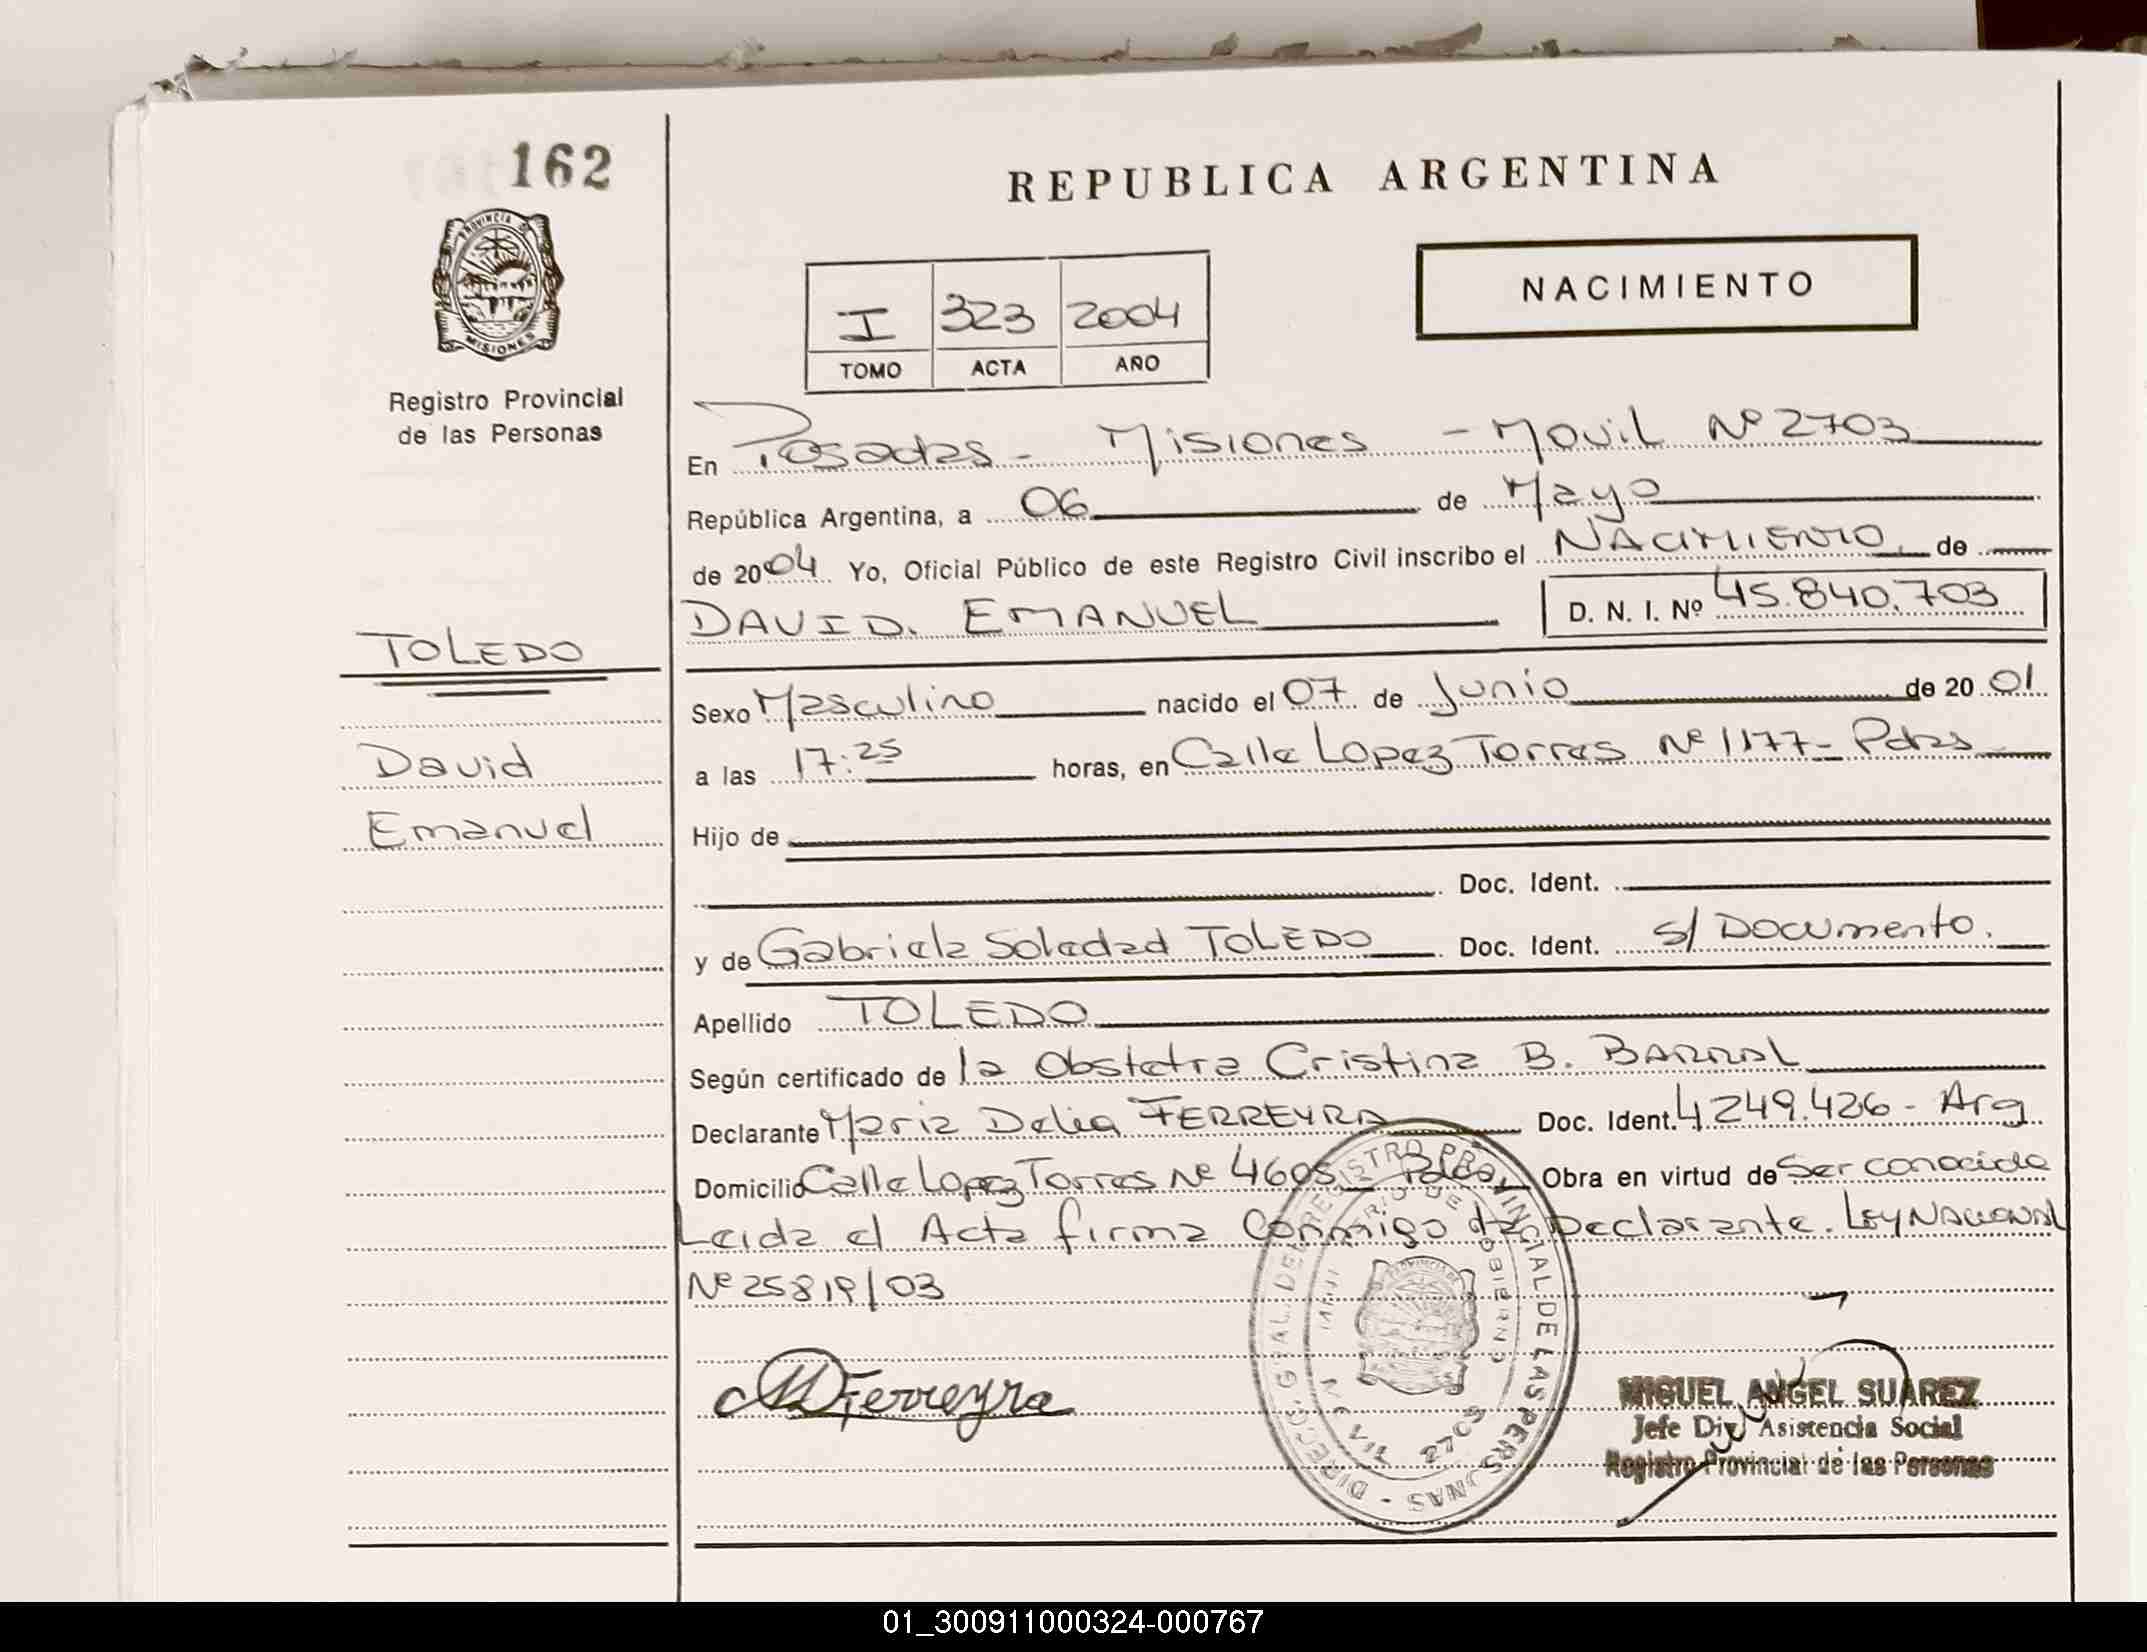 162
PROVINCIA DE
MISIONES
Registro Provincial
de las Personas
TOLEDO
David
Emanuel
REPUBLICA ARGENTINA
NACIMIENTO
I 323 2004
TOMO ACTA AÑO
En Posadas - Misiones - Movil Nº 2703
República Argentina, a 06 de Mayo
de 2004 Yo, Oficial Público de este Registro Civil inscribo el NACIMIENTO de
DAVID. EMANUEL D. N. I. Nº 45.840.703
Sexo Masculino nacido el 07 de Junio de 2001
a las 17:25 horas, en Calle Lopez Torres Nº 1177- Pdas
Hijo de
Doc. Ident.
y de Gabriela Soledad TOLEDO Doc. Ident. s/ Documento.
Apellido TOLEDO
Según certificado de la Obstetra Cristina B. BARRAL
Declarante Maria Delia FERREYRA Doc. Ident. 4249.426- Arg
Domicilio Calle Lopez Torres Nº 4605 - Pdas, Obra en virtud de Ser conocida
Leida el Acta firma Conmigo la Declarante. Ley NACIONAL
Nº 25819/03
MDFerreyra
DIRECC. GRAL. DEL REGISTRO PROVINCIAL DE LAS PERSONAS -
MOVIL 2703
MIGUEL ANGEL SUAREZ
Jefe Div. Asistencia Social
Registro Provincial de las Personas
01_300911000324-000767